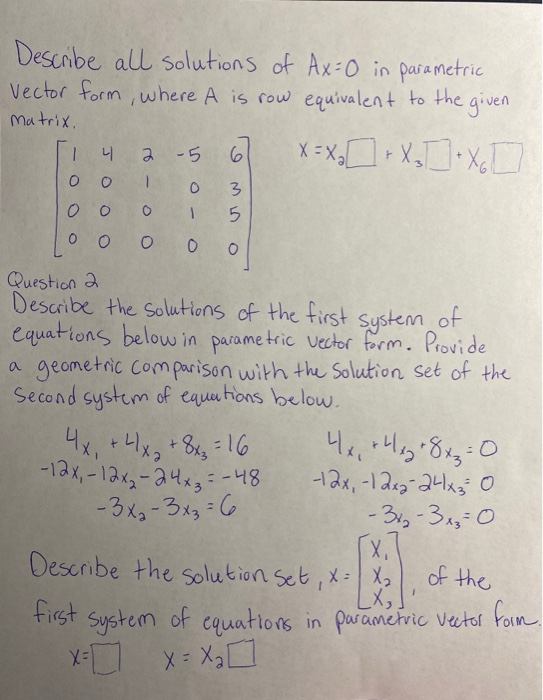 Describe all solutions of Ax=0 in parametric
Vector form, where A is row equivalent to the given
matrix.
[1 4 2 -5 6] x = x₂□ + x₃□ + x₆□
0 0 1 0 3
0 0 0 1 5
0 0 0 0 0
Question 2
Describe the solutions of the first system of
equations below in parametric vector form. Provide
a geometric comparison with the solution set of the
second system of equations below.
4x₁ + 4x₂ + 8x₃ = 16 4x₁ + 4x₂ + 8x₃ = 0
-12x₁ - 12x₂ - 24x₃ = -48 -12x₁ - 12x₂ - 24x₃ = 0
-3x₂ - 3x₃ = 6 -3x₂ - 3x₃ = 0
Describe the solution set, x = [x₁ x₂ x₃], of the
first system of equations in parametric vector form.
x = □ x = x₂□